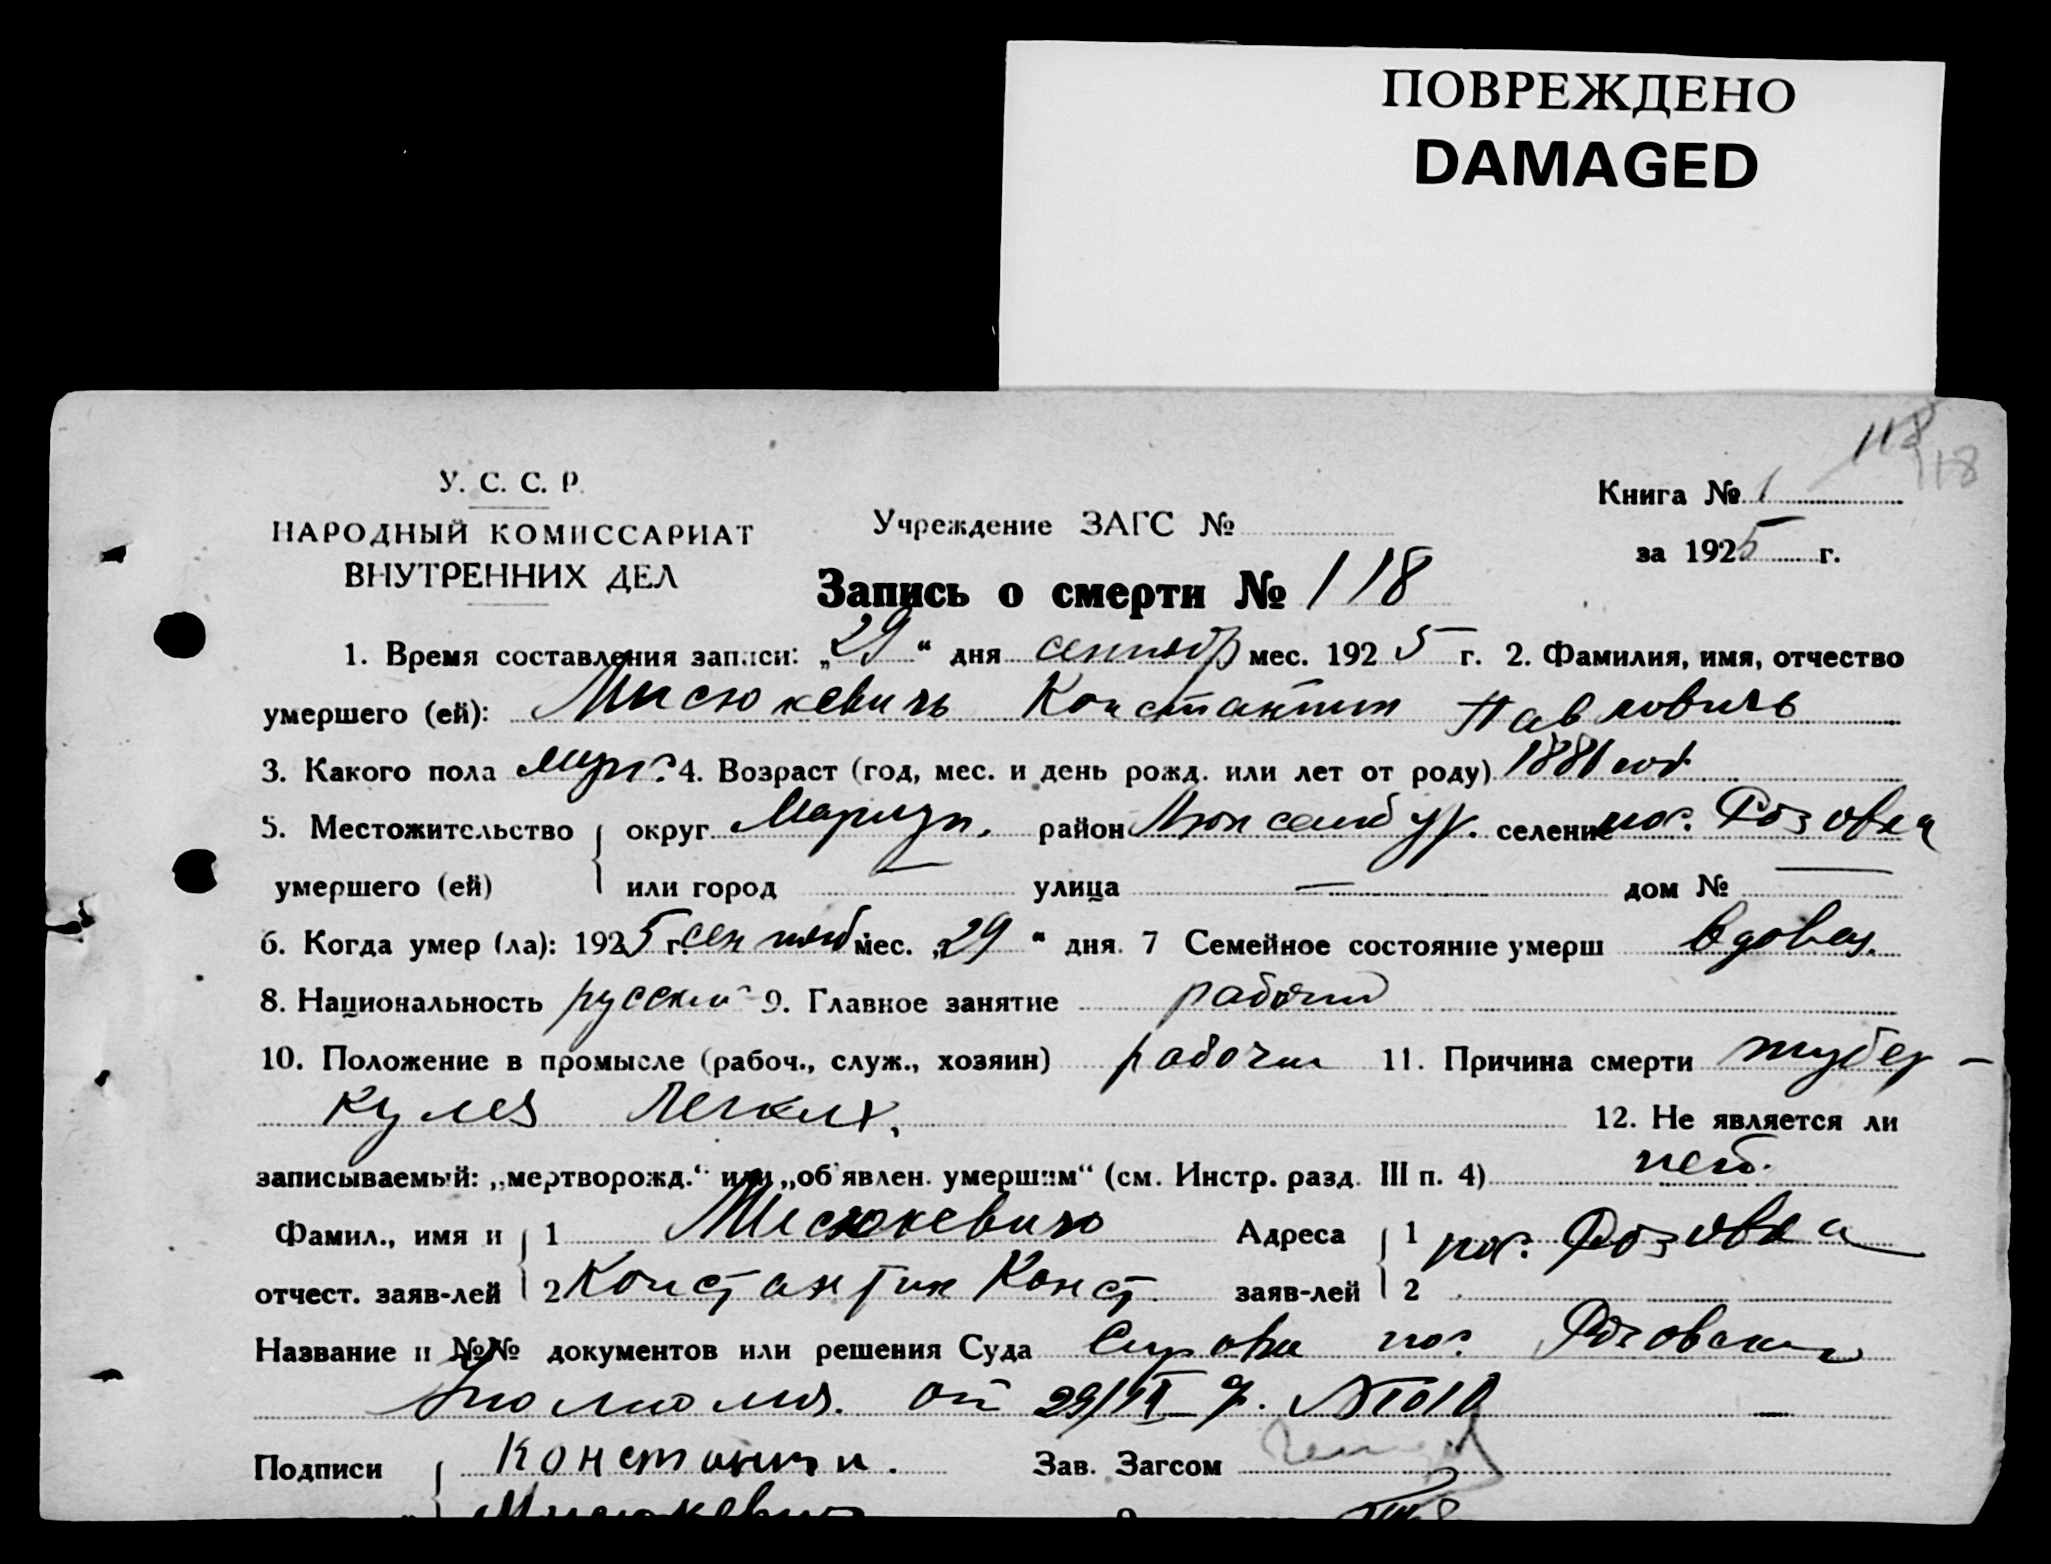 ПОВРЕЖДЕНО
DAMAGED
118
118
У. С. С. Р.
НАРОДНЫЙ КОМИССАРИАТ
ВНУТРЕННИХ ДЕЛ
Учреждение ЗАГС №
Книга № 1
за 1925 г.
Запись о смерти № 118
1. Время составления записи: „29“ дня сентябр мес. 1925 г. 2. Фамилия, имя, отчество
умершего (ей): Мисюкевичъ Константин Павловичъ
3. Какого пола муж. 4. Возраст (год, мес. и день рожд. или лет от роду) 1881 год
5. Местожительство округ Мариуп. район Люксембур. селение пос. Розовка
умершего (ей) или город — улица — дом № —
6. Когда умер (ла): 1925 г. сентяб мес. „29“ дня. 7 Семейное состояние умерш вдовец.
8. Национальность русский 9. Главное занятие рабочий
10. Положение в промысле (рабоч., служ., хозяин) рабочий 11. Причина смерти тубер-
кулез Легких,
12. Не является ли
записываемый: „мертворожд.“ или „об'явлен. умершим“ (см. Инстр. разд. III п. 4) нет.
Фамил., имя и 1 Мисюкевичъ Адреса 1 пос. Розовка
отчест. заяв-лей 2 Константин Конст. заяв-лей 2
Название и №№ документов или решения Суда Справка пос. Розовской
от 29/IX
Подписи Константин. Зав. Загсом
Мисюкевич